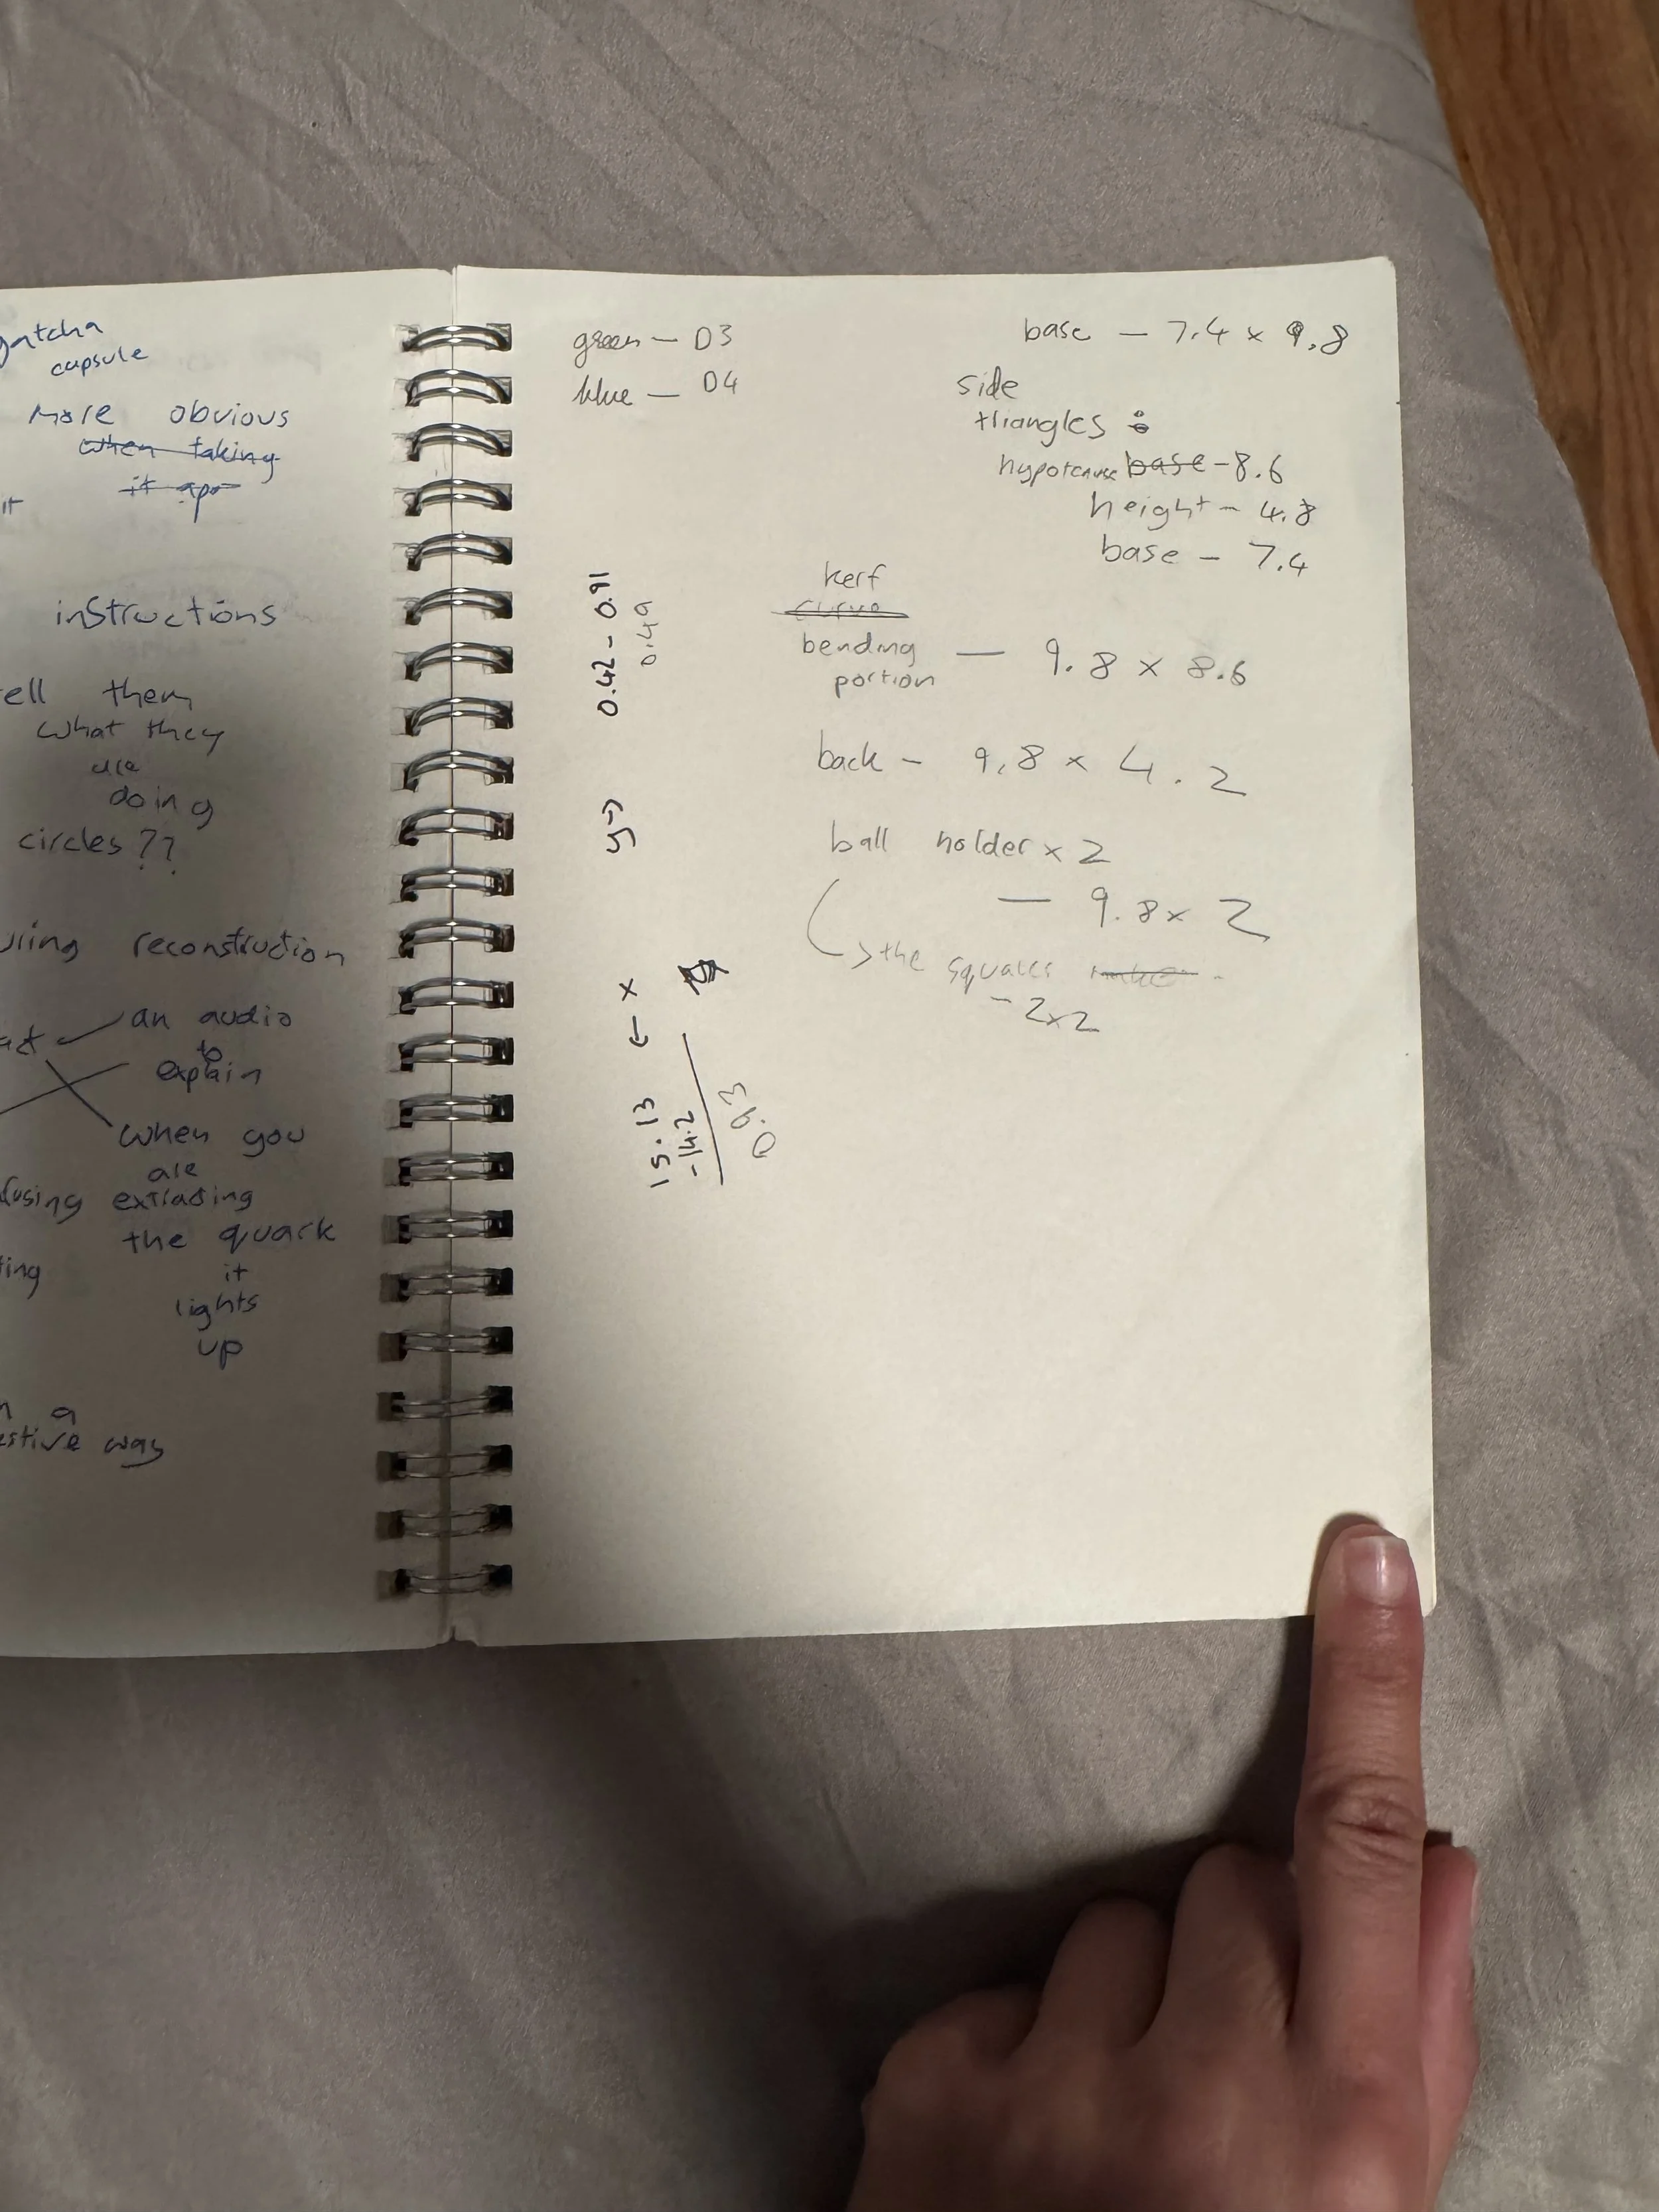 gatcha
capsule
more obvious
when taking
it apa
it
instructions
ell them
what they
are
doing
circles??
uring reconstruction
an audio
to
explain
when you
are
fusing extracting
the quark
ting it
lights
up
n a
estive way
green - D3
blue - D4
base - 7.4 x 9.8
side
triangles :
hypotenuse base - 8.6
height - 4.8
base - 7.4
kerf
curve
bending
portion — 9.8 x 8.6
back - 9.8 x 4.2
ball holder x 2
— 9.8 x 2
↳ the squares
- 2x2
y → 0.42 - 0.91
0.49
← x
15.13
-14.2
0.93